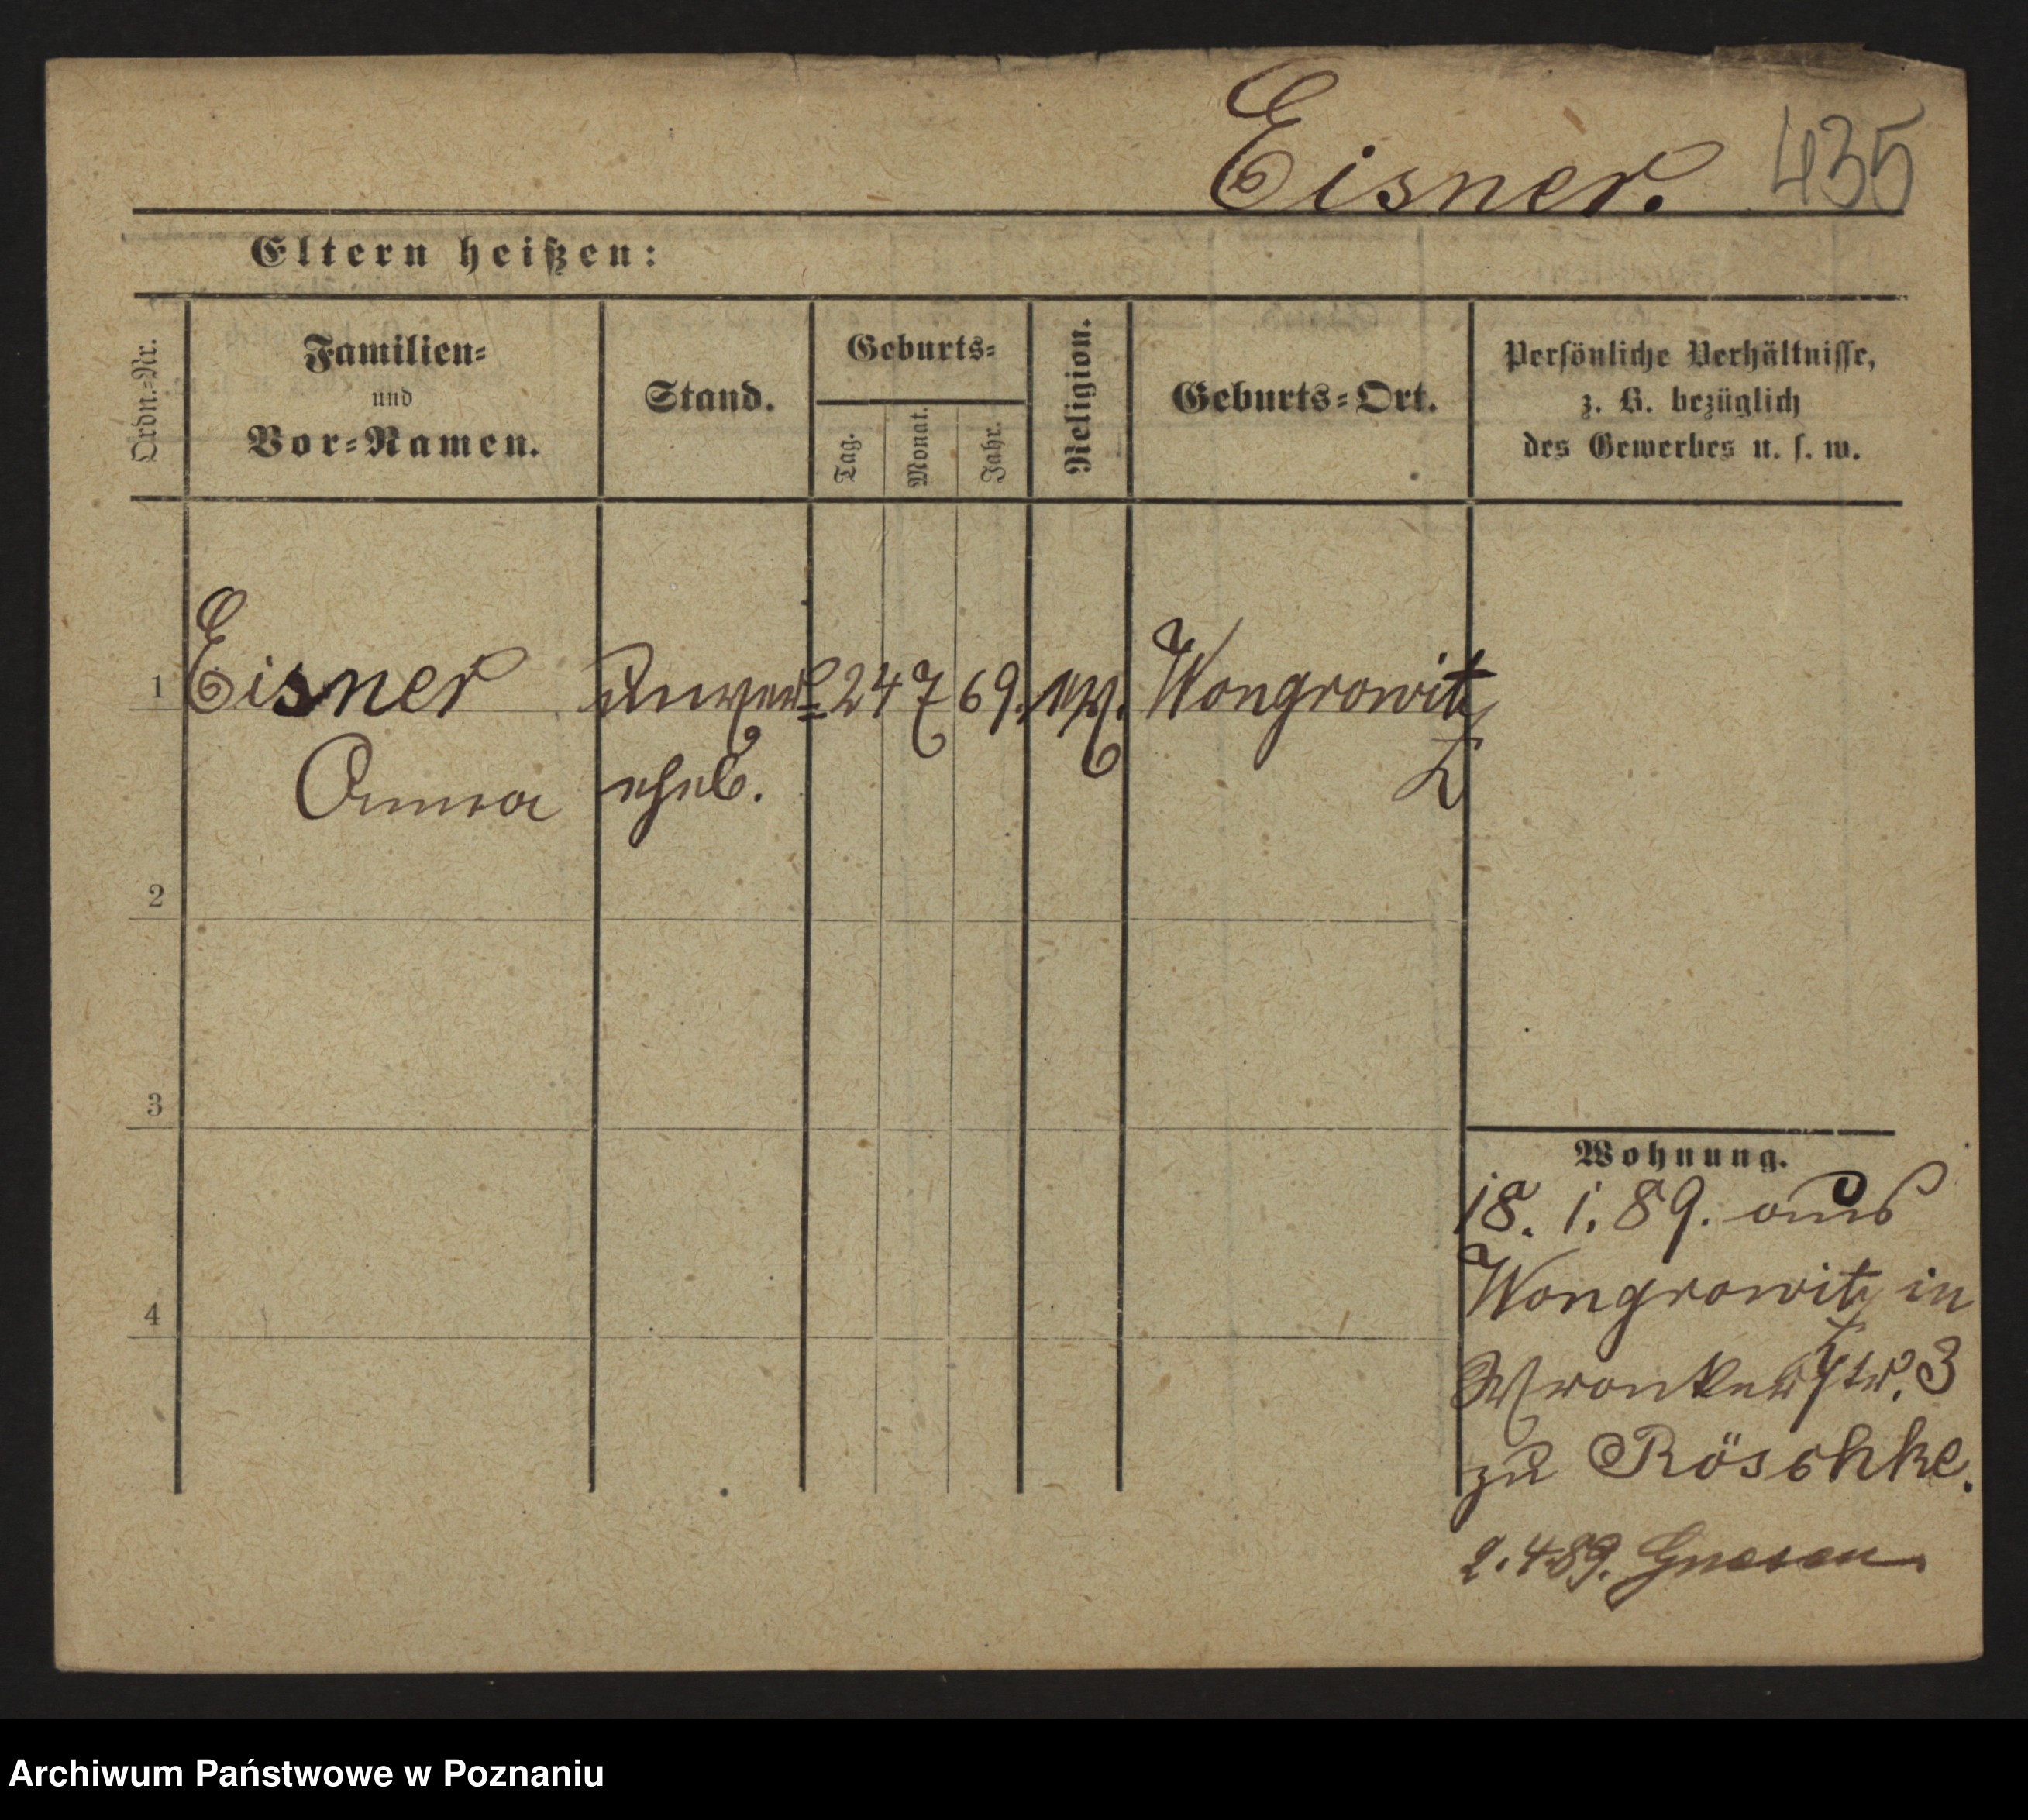 Eisner. 435
Eltern heißen:
Ordn.-Nr.
Familien-
und
Vor-Namen.
Stand.
Geburts-
Tag.
Monat.
Jahr.
Religion.
Geburts-Ort.
Persönliche Verhältnisse,
z. B. bezüglich
des Gewerbes u. s. w.
1 Eisner Unver= 24 7 69. Wongrowit
Anna ehel. z
2
3
4
Wohnung.
18. 1. 89. aus
Wongrowitz in
Wronkerstr. 3
zu Röschke.
2. 4 89. Gnesen.
Archiwum Państwowe w Poznaniu